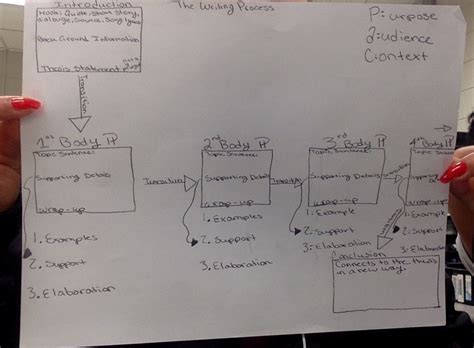 The Writing Process
Introduction
Hook: Quote, short story,
dialouge, Source, Song lyrics
Back Ground Information
Thesis Statement
Transition
P: urpose
audience
Context
1st Body P
Topic Sentence:
Supporting Details
wrap-up
1. Examples
2. Support
3. Elaboration
Transition
2nd Body P
Topic Sentence:
Supporting Details
wrap-up
1. Examples
2. Support
3. Elaboration
Transition
3rd Body P
Topic Sentence:
Supporting Details
wrap-up
1. Example
2. Support
3. Elaboration
4th Body P
Topic Sentence:
wrap-up
1. Example
2. Support
3. Elaboration
Conclusion
Connects to the thesis
in a new way.